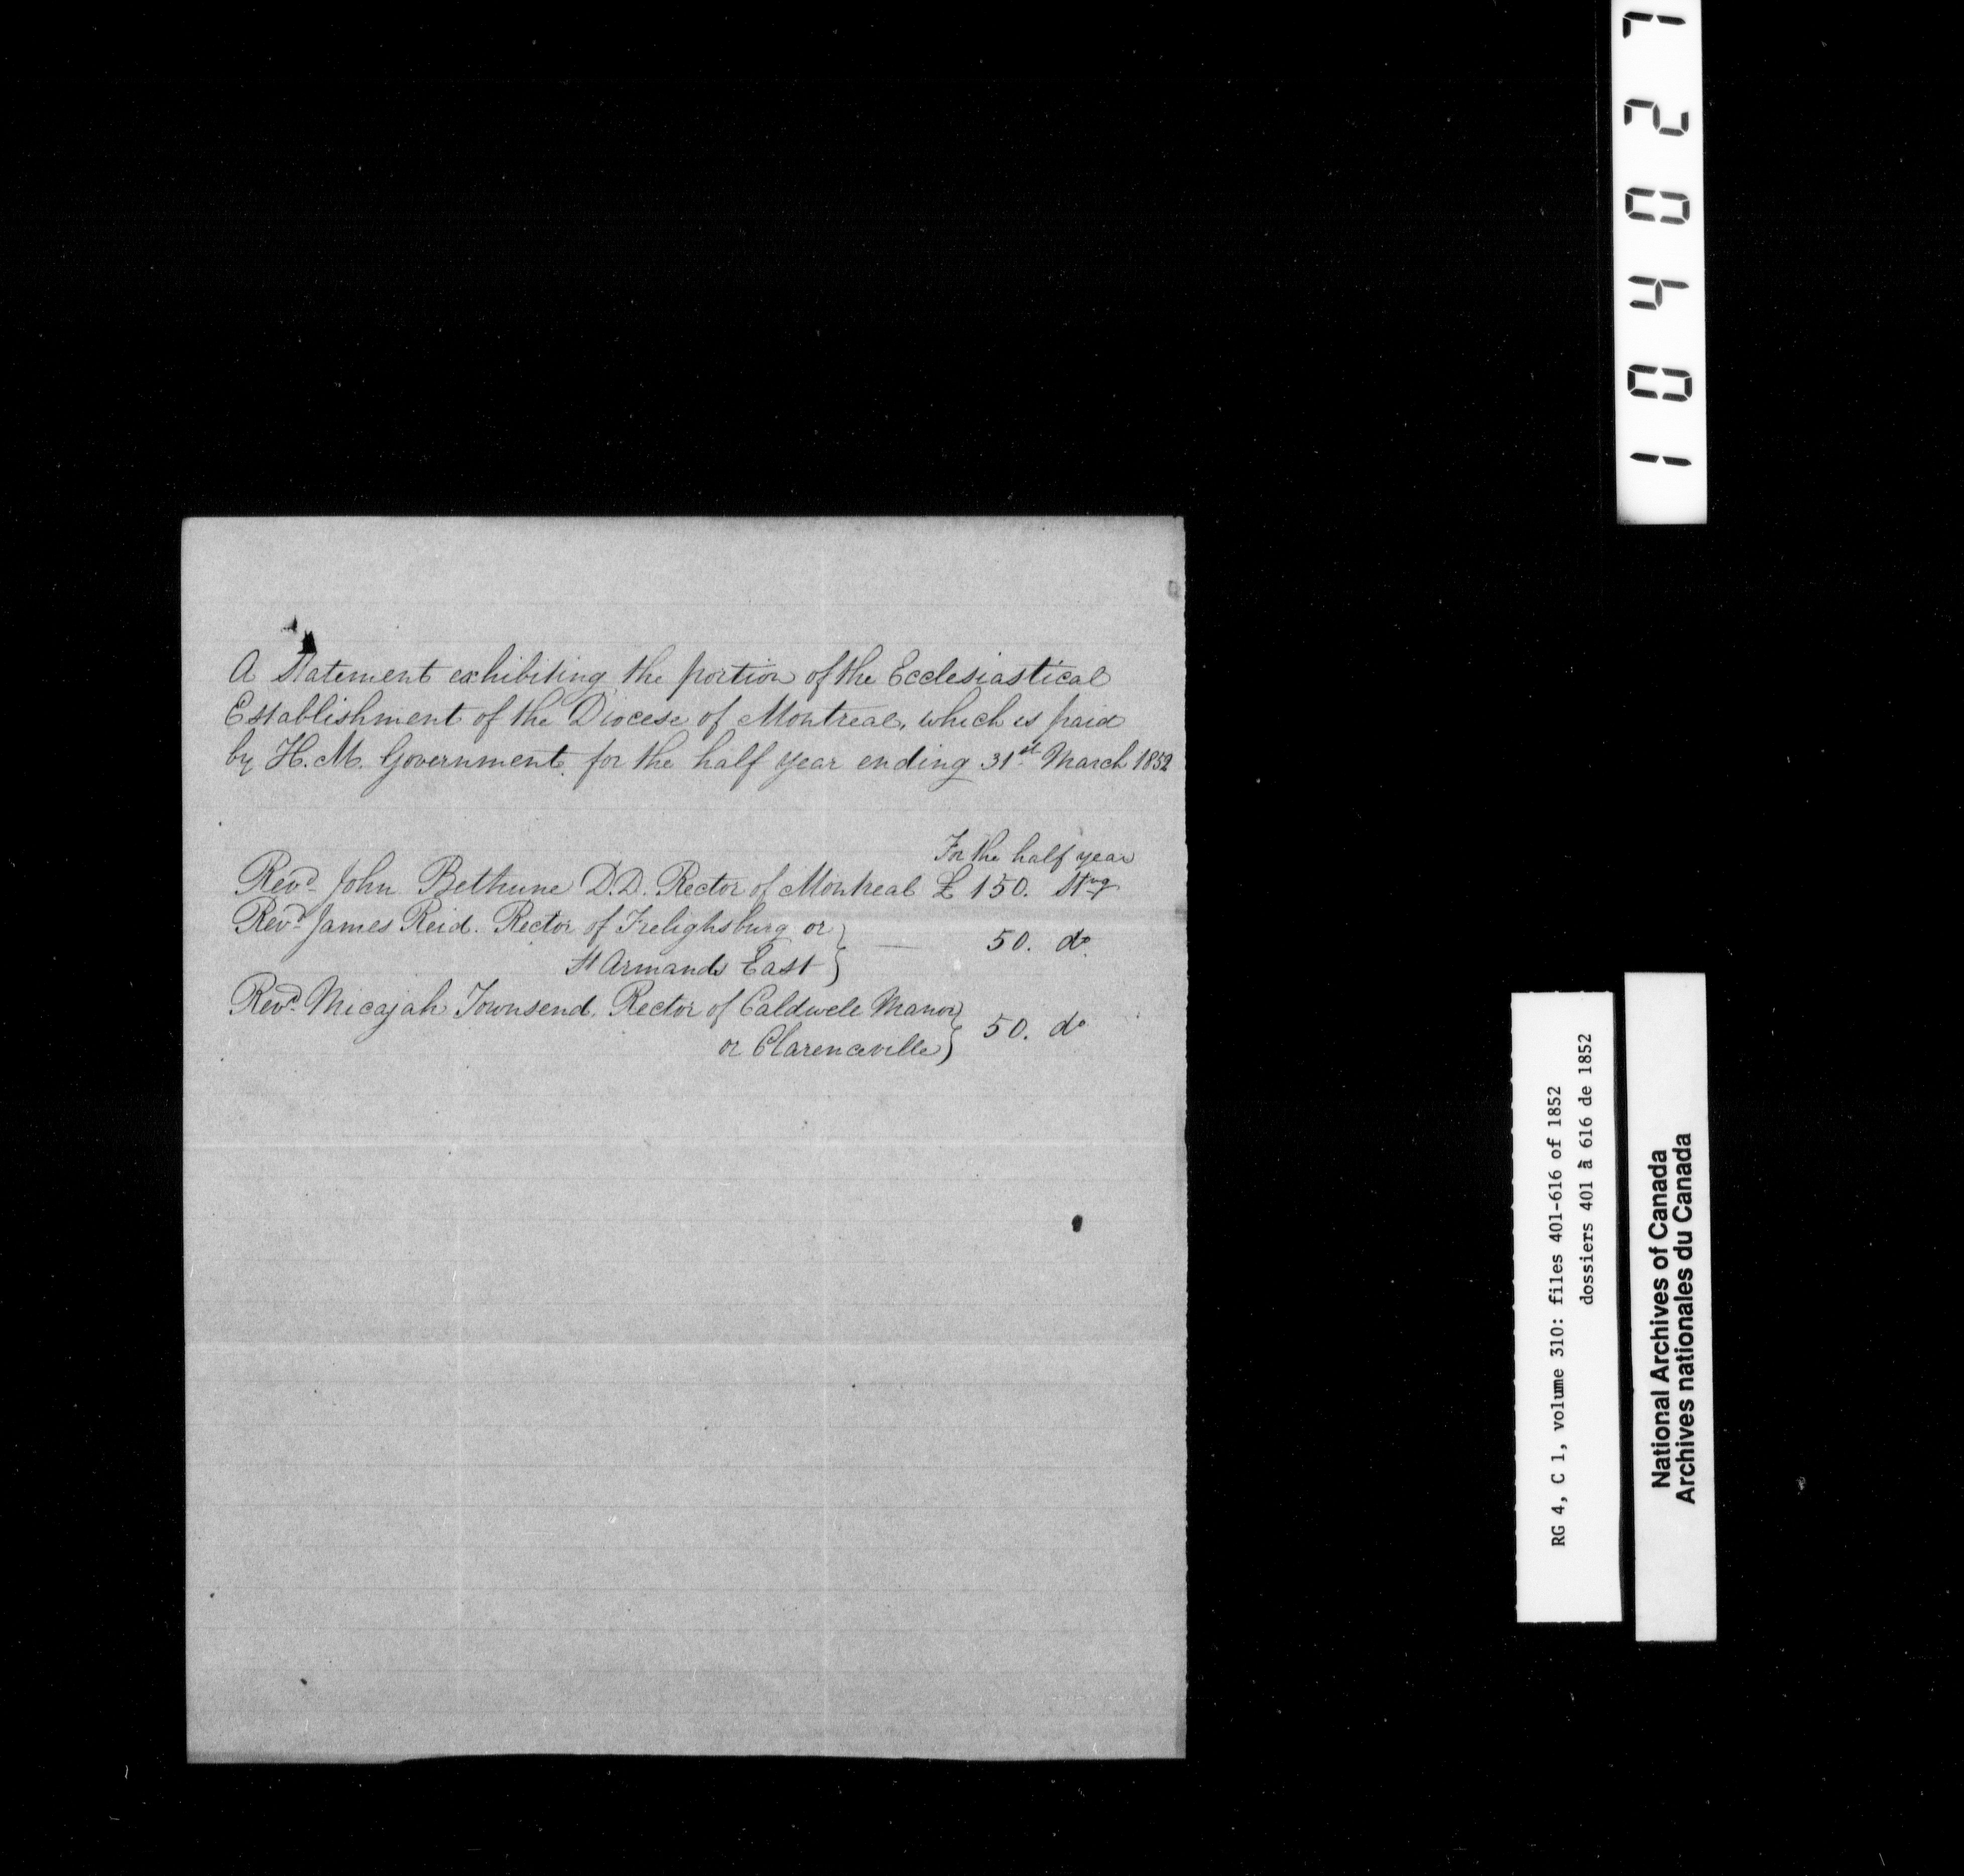 A Statement exhibiting the portion of the Ecclesiastical
Establishment of the Diocese of Montreal, which is paid
by H. M. Government for the half year ending 31st March 1852
For the half year
Revd. John Bethune D.D. Rector of Montreal £ 150. Stng
Revd. James Reid. Rector of Frelighsburg or
St Armands East } — 50. do.
Revd. Micajah Townsend. Rector of Caldwell Manor
or Clarenceville } 50. do
104027
RG 4, C 1, volume 310: files 401-616 of 1852
dossiers 401 à 616 de 1852
National Archives of Canada
Archives nationales du Canada